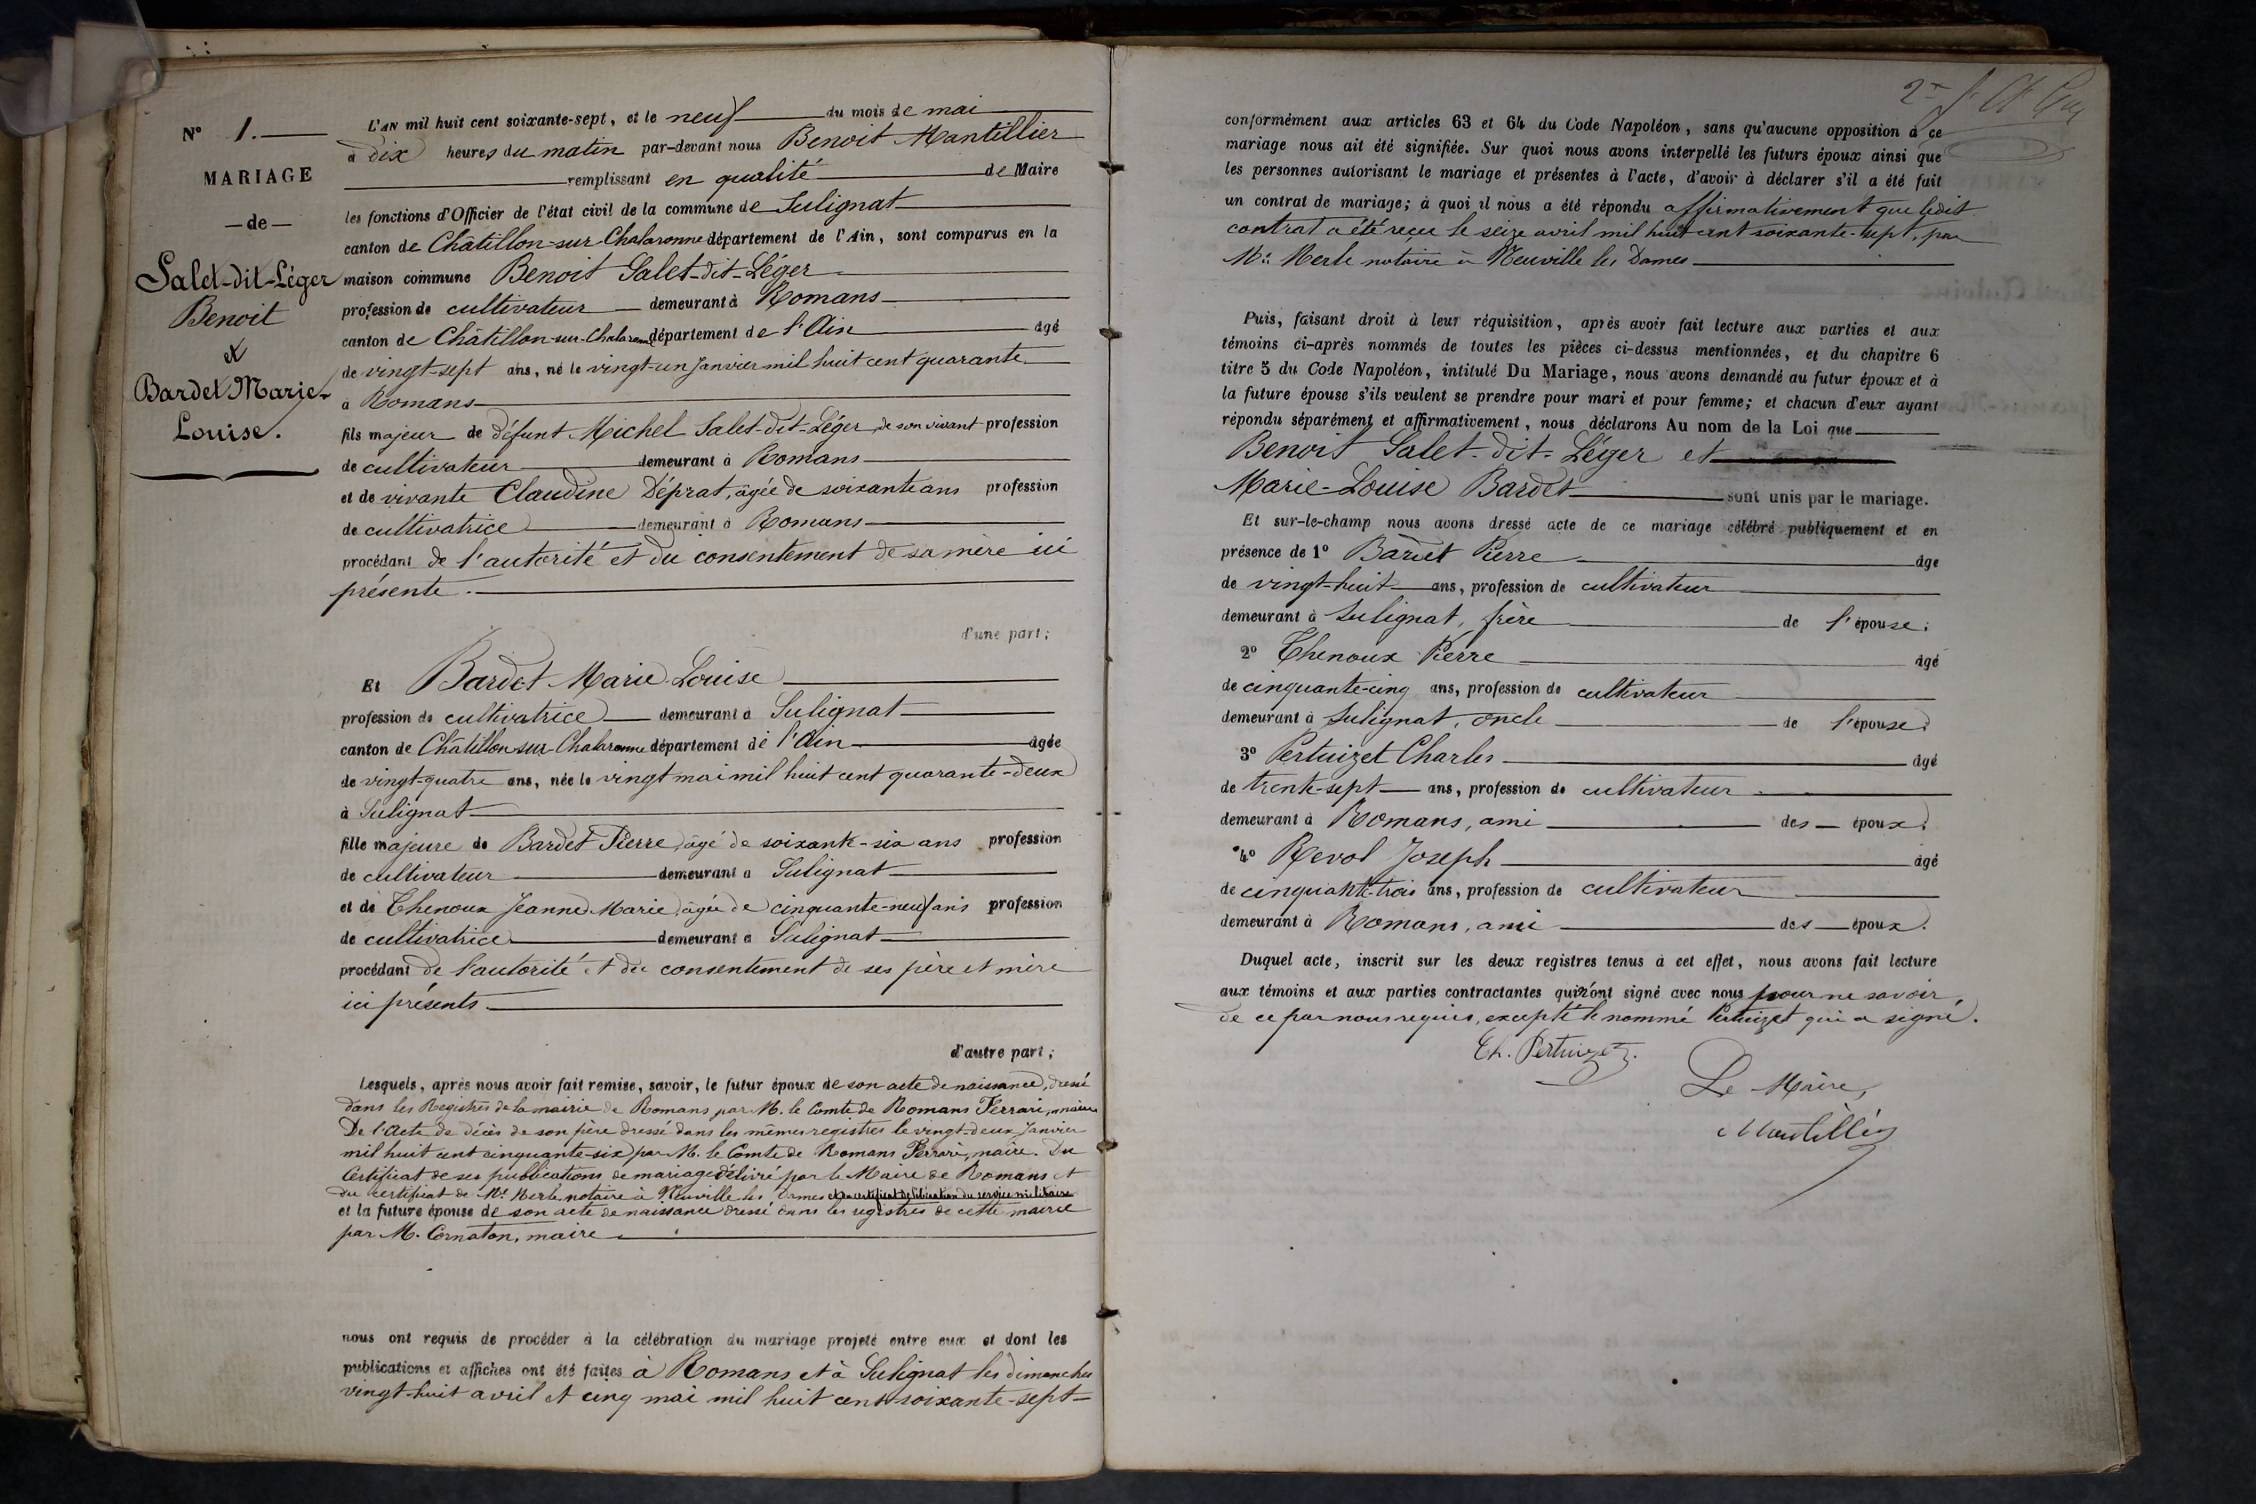 N° 1.
MARIAGE
— de —
Salet-dit-Léger
Benoit
et
Bardet Marie-
Louise.
L'AN mil huit cent soixante-sept, et le neuf du mois de mai
à dix heures du matin par-devant nous Benoit Mantillier
remplissant en qualité de Maire
les fonctions d'Officier de l'état civil de la commune de Sulignat
canton de Châtillon-sur-Chalaronne département de l'Ain, sont comparus en la
maison commune Benoit Salet-dit-Léger
profession de cultivateur demeurant à Romans
canton de Châtillon-sur-Chalaronne département de l'Ain âgé
de vingt-sept ans, né le vingt-un Janvier mil huit cent quarante
à Romans
fils majeur de défunt Michel Salet-dit-Léger, de son vivant profession
de cultivateur demeurant à Romans
et de vivante Claudine Déprat, âgée de soixante ans profession
de cultivatrice demeurant à Romans
procédant de l'autorité et du consentement de sa mère ici
présente.
d'une part;
Et Bardet Marie-Louise
profession de cultivatrice demeurant à Sulignat
canton de Châtillon-sur-Chalaronne département de l'Ain âgée
de vingt-quatre ans, née le vingt mai mil huit cent quarante-deux
à Sulignat
fille majeure de Bardet Pierre, âgé de soixante-six ans profession
de cultivateur demeurant à Sulignat
et de Thenoux Jeanne-Marie, âgée de cinquante-neuf ans profession
de cultivatrice demeurant à Sulignat
procédant de l'autorité et du consentement de ses père et mère
ici présents.
d'autre part;
Lesquels, après nous avoir fait remise, savoir, le futur époux de son acte de naissance, dressé
dans les Registres de la mairie de Romans par M. le Comte de Romans Ferrari, maire
De l'Acte de décès de son père dressé dans les mêmes registres le vingt-deux Janvier
mil huit cent cinquante-six par M. le Comte de Romans Ferrari, maire. Du
Certificat de ses publications de mariage délivré par le Maire de Romans et
du certificat de Me Merle, notaire à Neuville les Dames et du certificat de libération du service militaire
et la future épouse de son acte de naissance dressé dans les registres de cette mairie
par M. Cornaton, maire
nous ont requis de procéder à la célébration du mariage projeté entre eux et dont les
publications et affiches ont été faites à Romans et à Sulignat les dimanches
vingt-huit avril et cinq mai mil huit cent soixante-sept
2e
conformément aux articles 63 et 64 du Code Napoléon, sans qu'aucune opposition à ce
mariage nous ait été signifiée. Sur quoi nous avons interpellé les futurs époux ainsi que
les personnes autorisant le mariage et présentes à l'acte, d'avoir à déclarer s'il a été fait
un contrat de mariage; à quoi il nous a été répondu affirmativement que ledit
contrat a été reçu le seize avril mil huit cent soixante-sept, par
Me Merle notaire à Neuville les Dames
Puis, faisant droit à leur réquisition, après avoir fait lecture aux parties et aux
témoins ci-après nommés de toutes les pièces ci-dessus mentionnées, et du chapitre 6
titre 5 du Code Napoléon, intitulé Du Mariage, nous avons demandé au futur époux et à
la future épouse s'ils veulent se prendre pour mari et pour femme; et chacun d'eux ayant
répondu séparément et affirmativement, nous déclarons Au nom de la Loi que
Benoit Salet-dit-Léger et
Marie-Louise Bardet sont unis par le mariage.
Et sur-le-champ nous avons dressé acte de ce mariage célébré publiquement et en
présence de 1° Bardet Pierre âgé
de vingt-huit ans, profession de cultivateur
demeurant à Sulignat, frère de l'épouse;
2° Thenoux Pierre âgé
de cinquante-cinq ans, profession de cultivateur
demeurant à Sulignat, oncle de l'épouse;
3° Pertuizet Charles âgé
de trente-sept ans, profession de cultivateur
demeurant à Romans, ami des époux;
4° Revol Joseph âgé
de cinquante-trois ans, profession de cultivateur
demeurant à Romans, ami des époux.
Duquel acte, inscrit sur les deux registres tenus à cet effet, nous avons fait lecture
aux témoins et aux parties contractantes qui n'ont signé avec nous pour ne savoir,
de ce par nous requis, excepté le nommé Pertuizet qui a signé.
Ch. Pertuizet.
Le Maire,
Mantillier